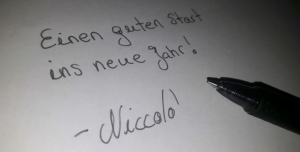 Einen guten Start
ins neue Jahr!
- Niccolò